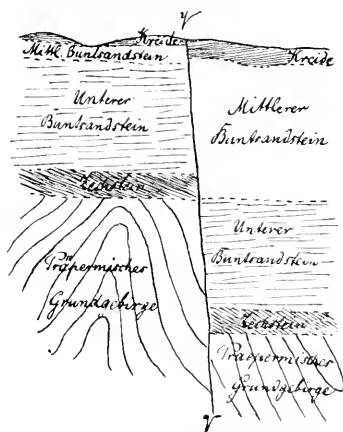 V
Kreide
Mittl. Buntsandstein
Kreide
Unterer
Buntsandstein
Mittlerer
Buntsandstein
Zechstein
Unterer
Buntsandstein
Präpermisches
Grundgebirge
Zechstein
Praepermisches
Grundgebirge
V